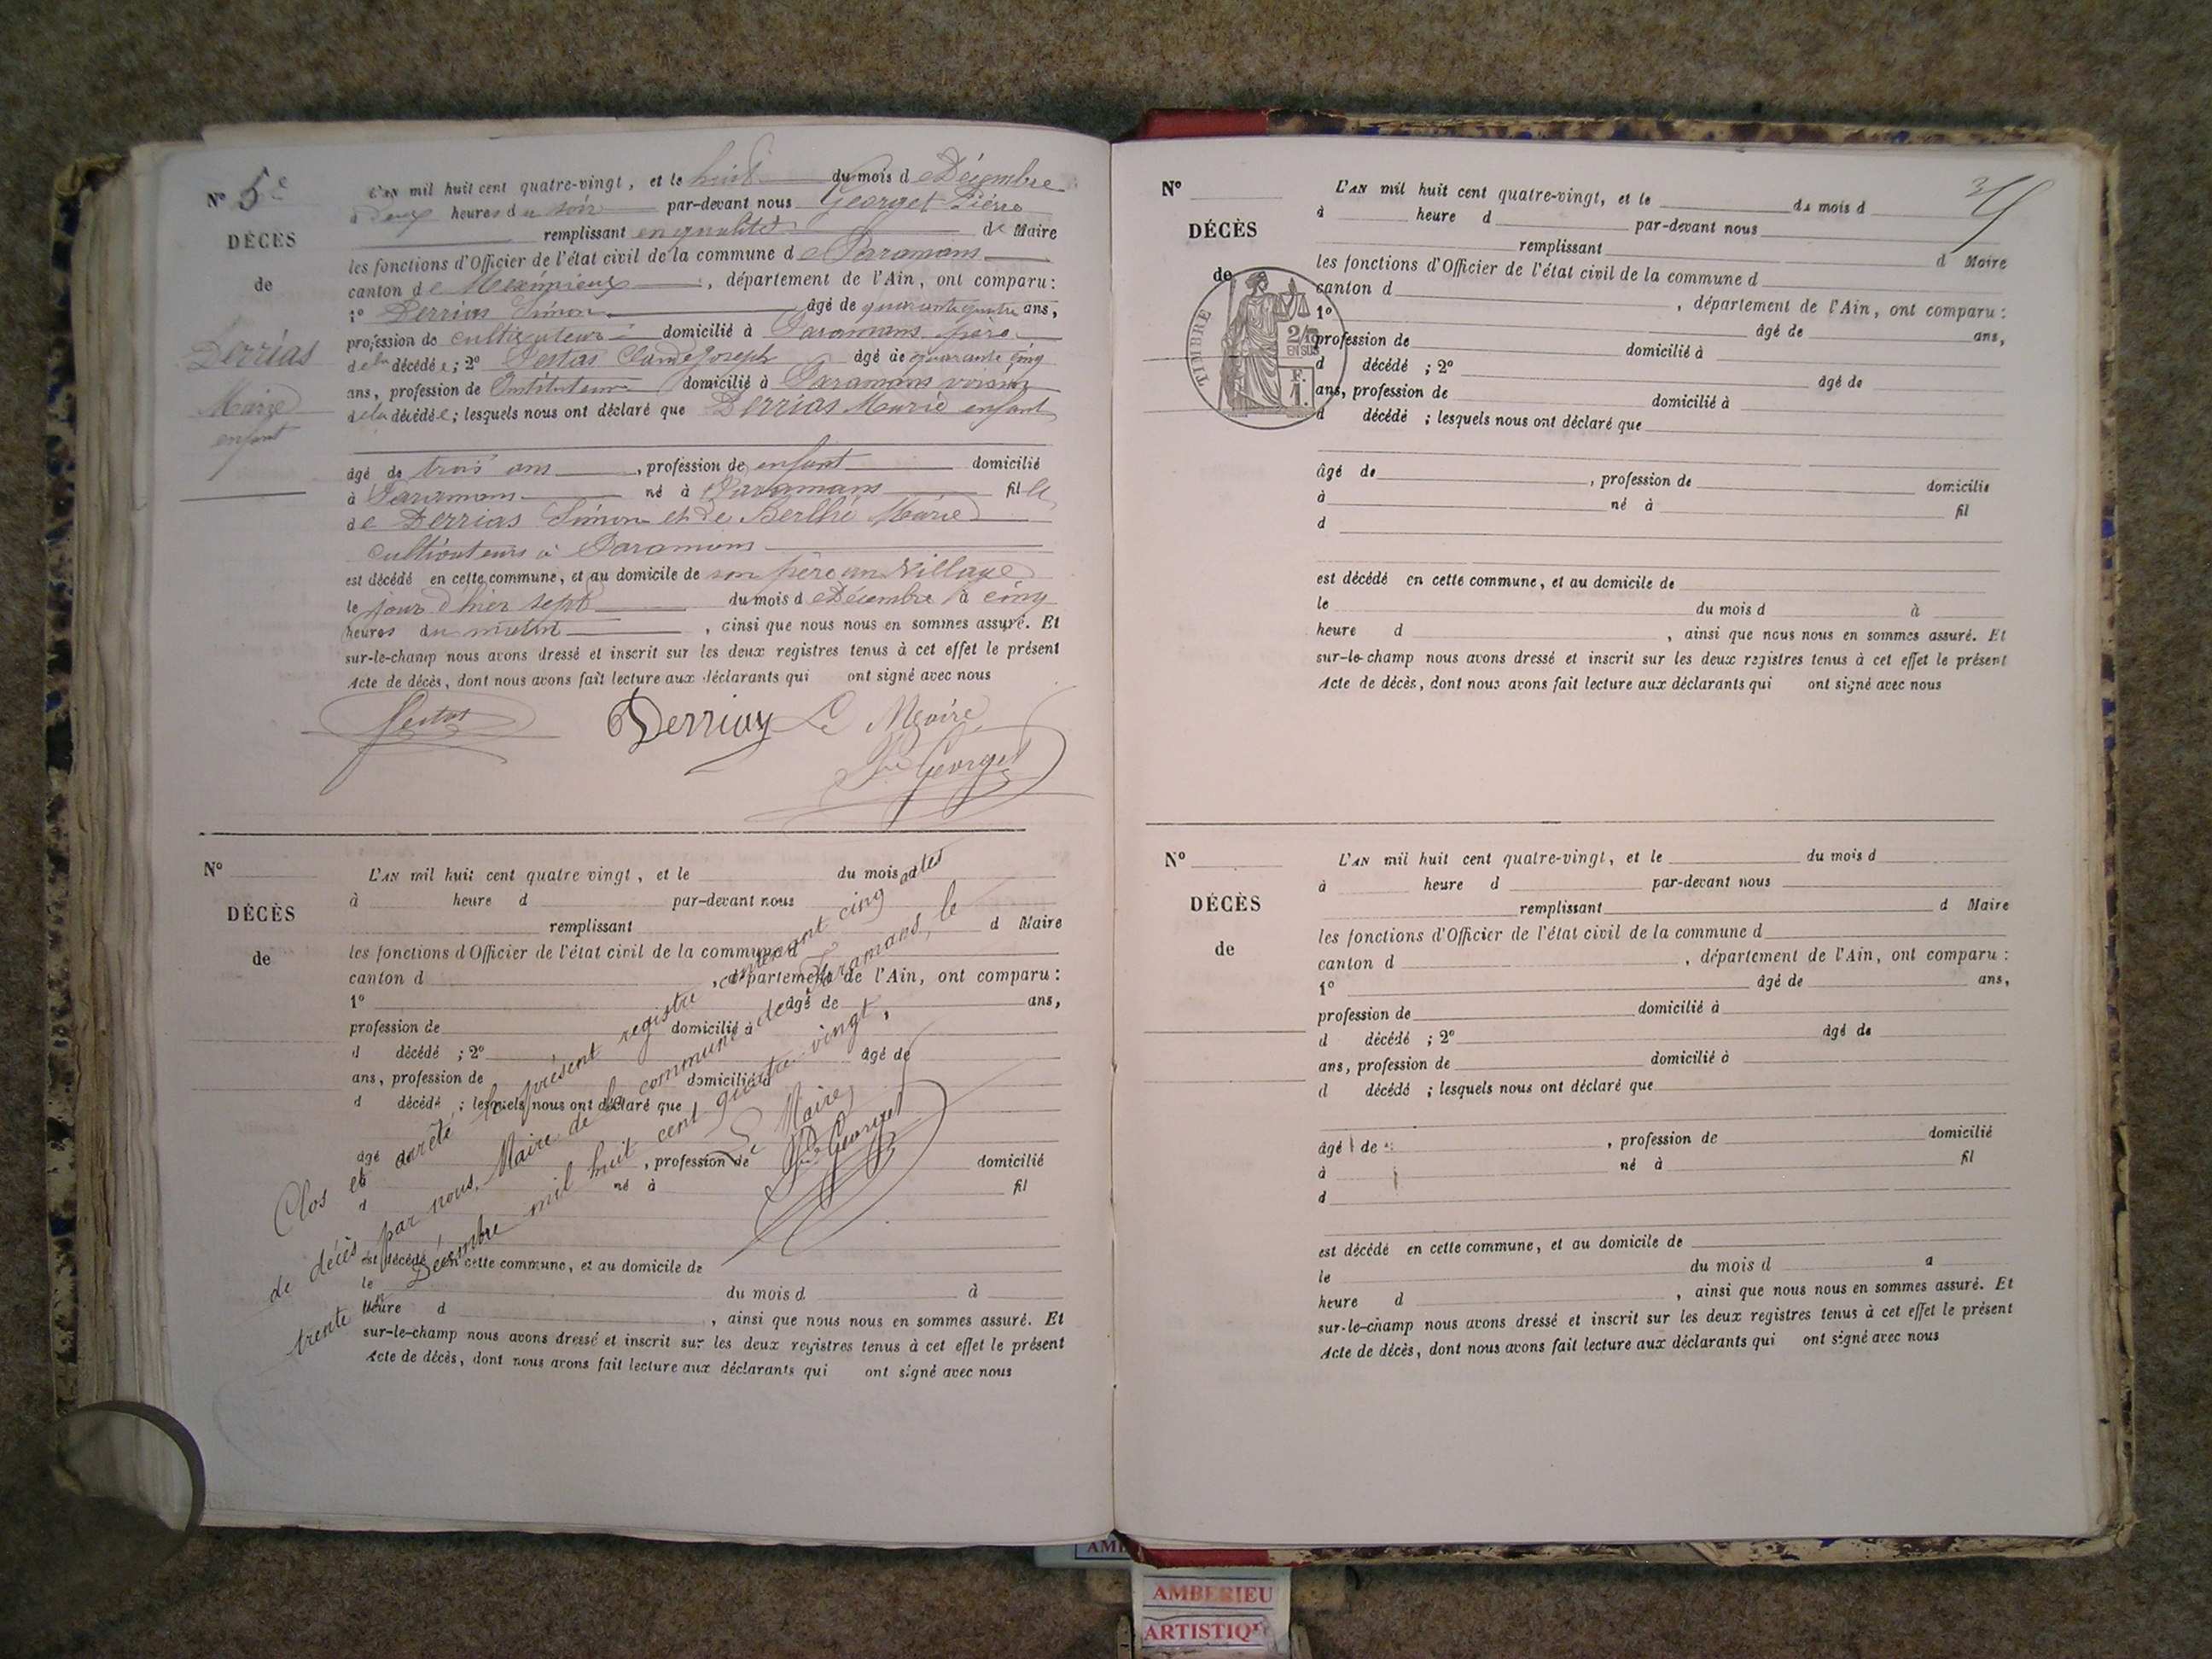 N° 5e
DÉCÈS
de
Derrias
Marie
enfant
L'AN mil huit cent quatre-vingt, et le huit du mois de Décembre
à deux heures du soir par-devant nous Georget Pierre
remplissant en qualité de Maire
les fonctions d'Officier de l'état civil de la commune de Faramans
canton de Meximieux, département de l'Ain, ont comparu:
1° Derrias Simon âgé de quarante quatre ans,
profession de cultivateur domicilié à Faramans père
de la décédée; 2° Testas Claude Joseph âgé de quarante cinq
ans, profession de Instituteur domicilié à Faramans voisin
de la décédée; lesquels nous ont déclaré que Derrias Marie enfant
âgé de trois ans, profession de enfant domicilié
à Faramans né à Faramans fille
de Derrias Simon et de Berlhé Marie
cultivateurs à Faramans
est décédé en cette commune, et au domicile de son père au Village
le jour d'hier sept du mois de Décembre à cinq
heures du matin, ainsi que nous nous en sommes assuré. Et
sur-le-champ nous avons dressé et inscrit sur les deux registres tenus à cet effet le présent
Acte de décès, dont nous avons fait lecture aux déclarants qui ont signé avec nous
Testas Derrias Le Maire
Georget
N°
DÉCÈS
de
L'AN mil huit cent quatre vingt, et le du mois d
à heure d par-devant nous
remplissant d Maire
les fonctions d'Officier de l'état civil de la commune d
canton d , département de l'Ain, ont comparu:
1° âgé de ans,
profession de domicilié à
d décédé ; 2° âgé de
ans, profession de domicilié à
d décédé ; lesquels nous ont déclaré que
âgé de , profession de domicilié
né à fil
d
est décédé en cette commune, et au domicile de
le du mois d à
heure d , ainsi que nous nous en sommes assuré. Et
sur-le-champ nous avons dressé et inscrit sur les deux registres tenus à cet effet le présent
Acte de décès, dont nous avons fait lecture aux déclarants qui ont signé avec nous
Clos et arrêté le présent registre, contenant cinq actes
de décès par nous, Maire de la commune de Faramans, le
trente un Décembre mil huit cent quatre-vingt,
Le Maire
Georget
N°
DÉCÈS
de
TIMBRE
2/10
EN SUS
F.
1.
L'AN mil huit cent quatre-vingt, et le du mois d
à heure d par-devant nous
remplissant d Maire
les fonctions d'Officier de l'état civil de la commune d
canton d , département de l'Ain, ont comparu:
1° âgé de ans,
profession de domicilié à
d décédé ; 2° âgé de
ans, profession de domicilié à
d décédé ; lesquels nous ont déclaré que
âgé de , profession de domicilié
à né à fil
d
est décédé en cette commune, et au domicile de
le du mois d à
heure d , ainsi que nous nous en sommes assuré. Et
sur-le-champ nous avons dressé et inscrit sur les deux registres tenus à cet effet le présent
Acte de décès, dont nous avons fait lecture aux déclarants qui ont signé avec nous
N°
DÉCÈS
de
L'AN mil huit cent quatre-vingt, et le du mois d
à heure d par-devant nous
remplissant d Maire
les fonctions d'Officier de l'état civil de la commune d
canton d , département de l'Ain, ont comparu:
1° âgé de ans,
profession de domicilié à
d décédé ; 2° âgé de
ans, profession de domicilié à
d décédé ; lesquels nous ont déclaré que
âgé de , profession de domicilié
à né à fil
d
est décédé en cette commune, et au domicile de
le du mois d à
heure d , ainsi que nous nous en sommes assuré. Et
sur-le-champ nous avons dressé et inscrit sur les deux registres tenus à cet effet le présent
Acte de décès, dont nous avons fait lecture aux déclarants qui ont signé avec nous
AMBERIEU
ARTISTIQUE